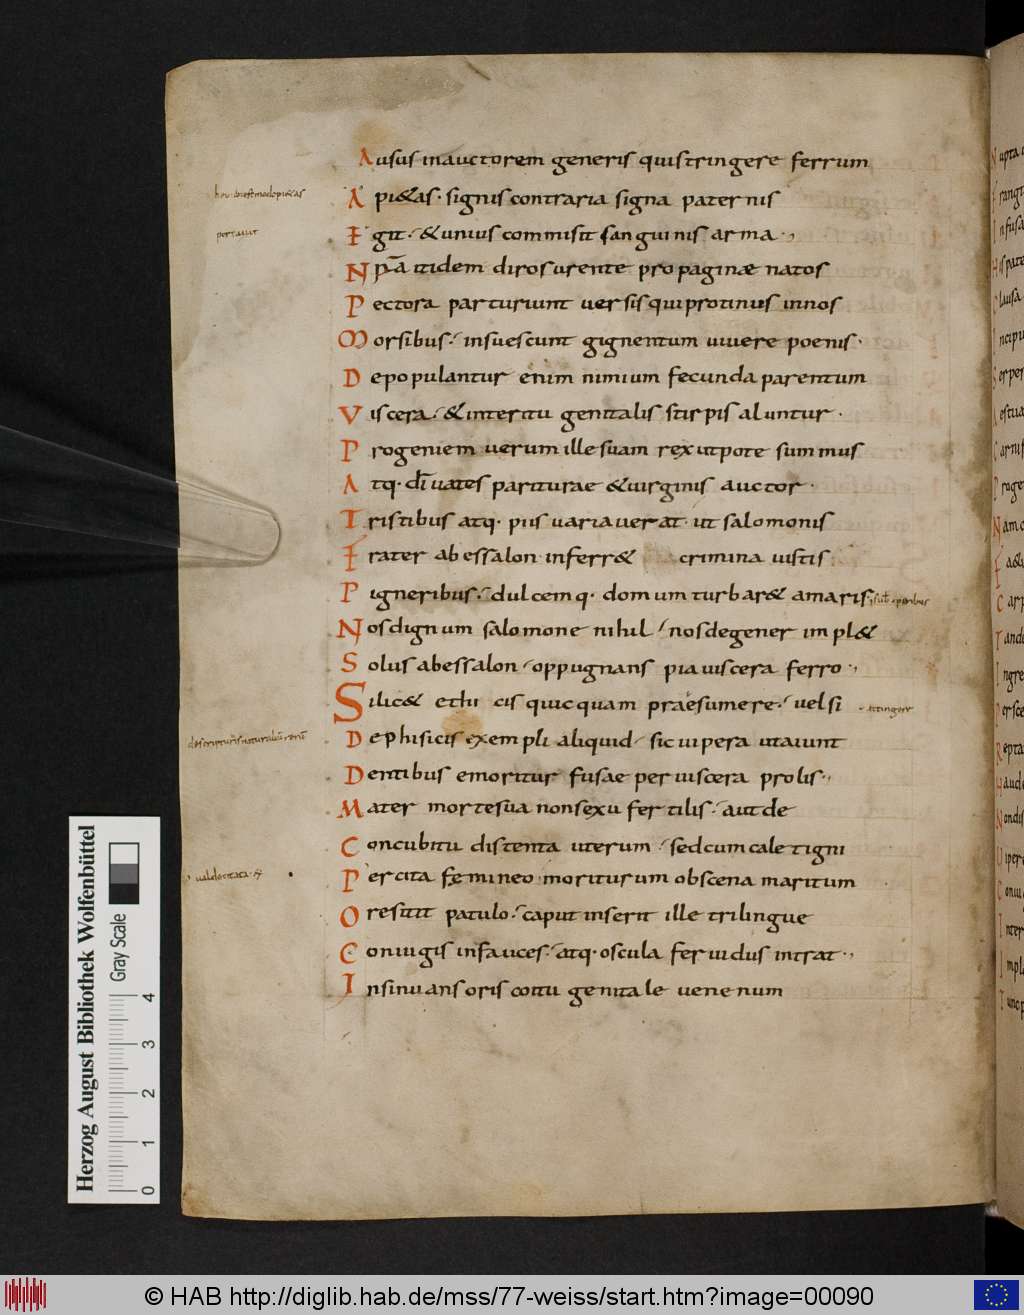 Ausus inauctorem generis quistringere ferrum
A pi&as · signis contraria signa paternis
Egit · & unius commisit sanguinis arma ·,
N pra itidem diros urente propaginæ natos
Pectora parturiunt uersis qui protinus innos
Morsibus · insuescunt gignentum uiuere poenis ·
Depopulantur enim nimium fecunda parentum
Viscera · & interitu genitalis stirpis aluntur ·
Progeniem uerum ille suam rex utpote summus
Atq· di uates pariturae & uirginis auctor ·
Tristibus atq· piis uaria uerat · ut salomonis
Frater abessalon inferr& crimina iustis
Pigneribus · dulcemq· domum turbar& amaris
Nos dignum salomone nihil / nos degener impl&
Solus abessalon / oppugnans pia uiscera ferro ·,
Silic& ethi cis quicquam praesumere · uel si
attingere
De phisicis exempli aliquid / sic uipera ut aiunt
Dentibus emoritur fusae per uiscera prolis ·,
Mater morte sua non sexu fertilis · aut de
Concubitu distenta uterum / sed cum caletigni
Percita femineo moriturum obscena maritum
Ore sitit patulo · caput inserit ille trilingue
Coniugis in fauces · atq· oscula feruidus intrat ·,
Insinuans oris coitu genitale uenenum
Herzog August Bibliothek Wolfenbüttel
Gray Scale
0 1 2 3 4
© HAB http://diglib.hab.de/mss/77-weiss/start.htm?image=00090